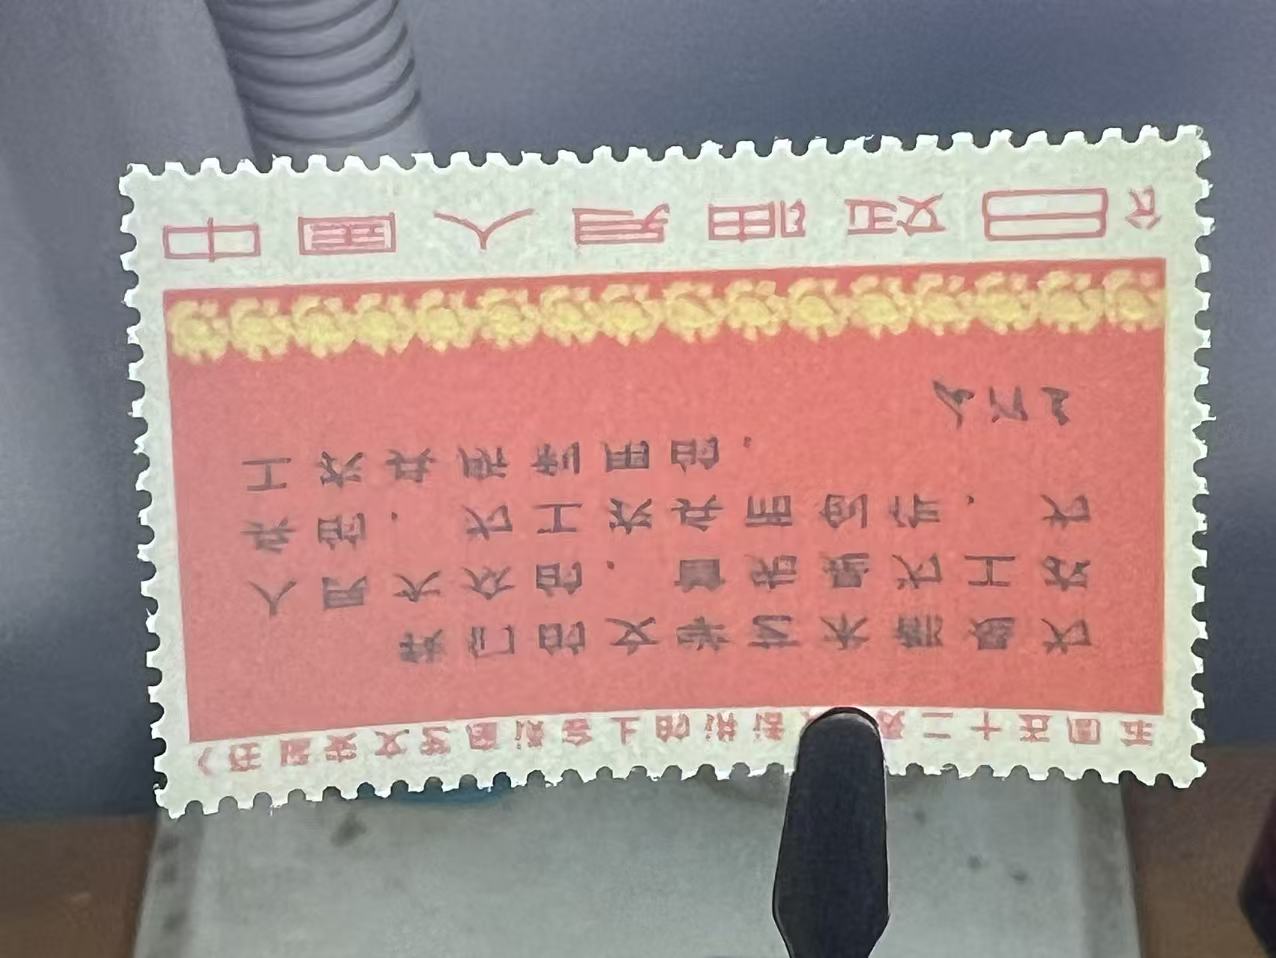 《在延安文艺座谈会上的讲话》发表二十五周年
我们的文学艺术都是为
人民大众的，首先是为工农
兵的，为工农兵而创作，为
工农兵所利用的。
毛泽东
中国人民邮政 8分